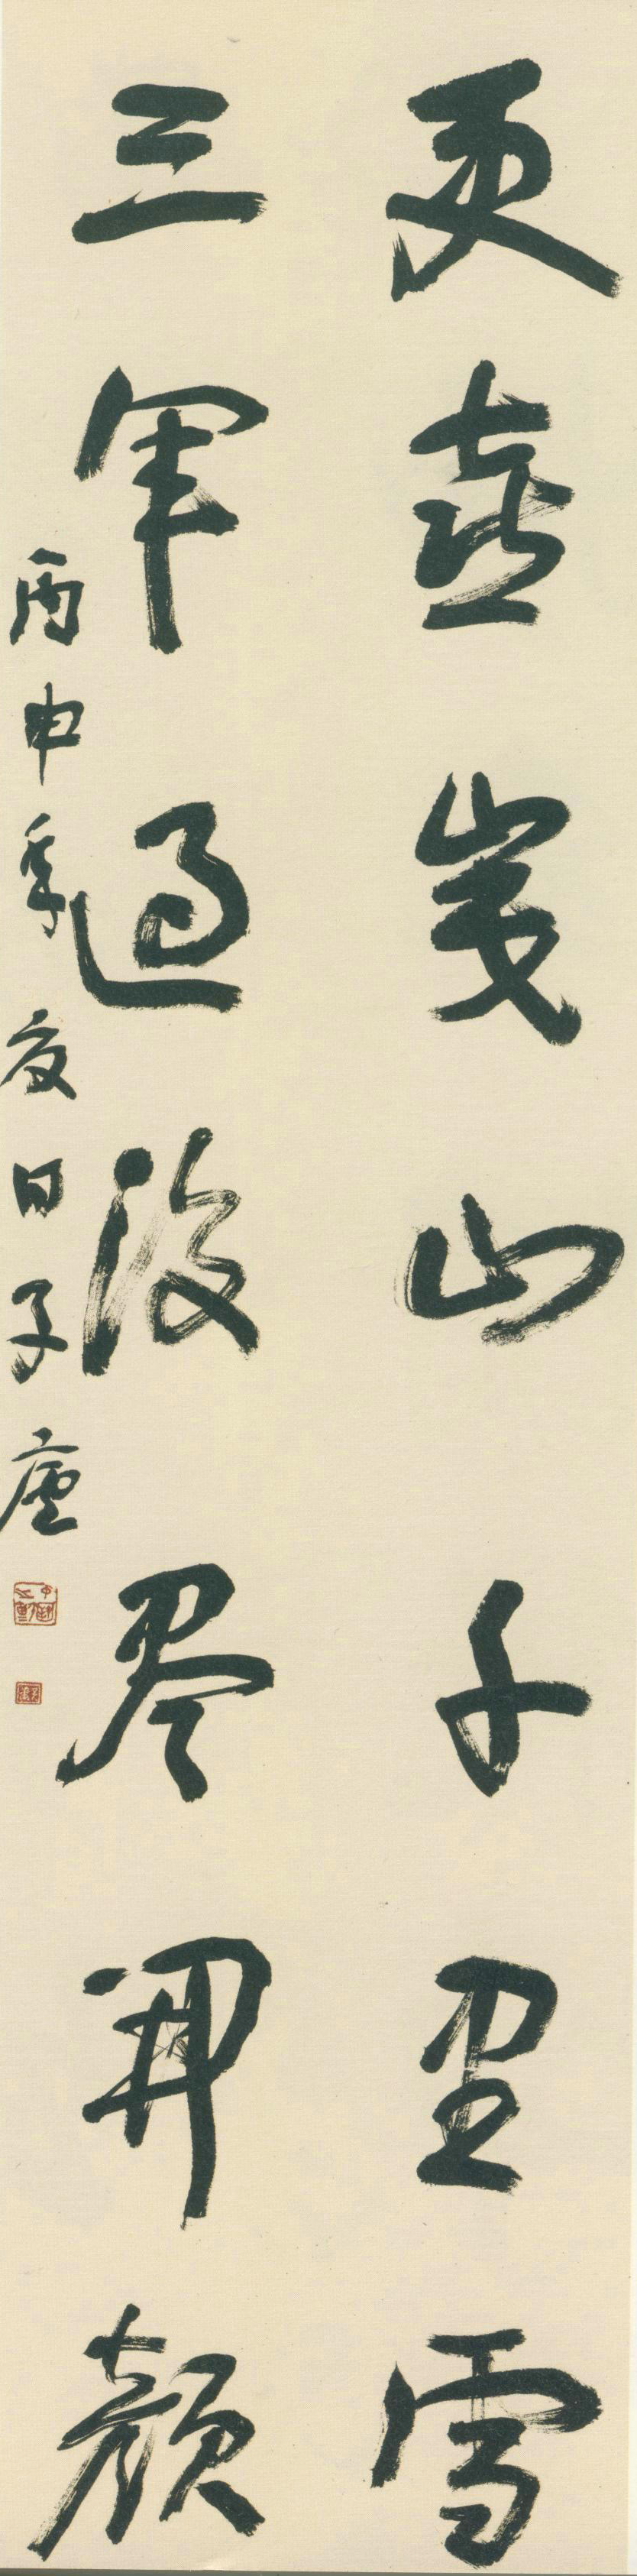 更喜岷山千里雪
三军过后尽开颜
丙申季夏日子庐